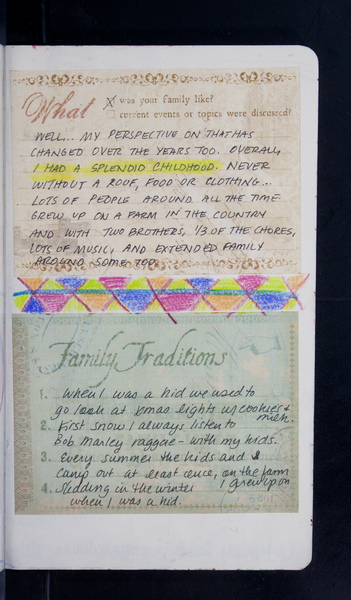 What
X was your family like?
current events or topics were discussed?
WELL... MY PERSPECTIVE ON THAT HAS
CHANGED OVER THE YEARS TOO. OVERALL,
I HAD A SPLENDID CHILDHOOD. NEVER
WITHOUT A ROOF, FOOD OR CLOTHING...
LOTS OF PEOPLE AROUND ALL THE TIME.
GREW UP ON A FARM IN THE COUNTRY
AND WITH TWO BROTHERS, 1/3 OF THE CHORES,
LOTS OF MUSIC, AND EXTENDED FAMILY
AROUND SOME TOO.
Family Traditions
1. When I was a kid we used to
go look at xmas lights w/ cookies +
milk.
2. First snow I always listen to
Bob Marley raggae - with my kids.
3. Every summer the kids and I
camp out at least once, on the farm
I grew up on
4. Sledding in the winter
when I was a kid.